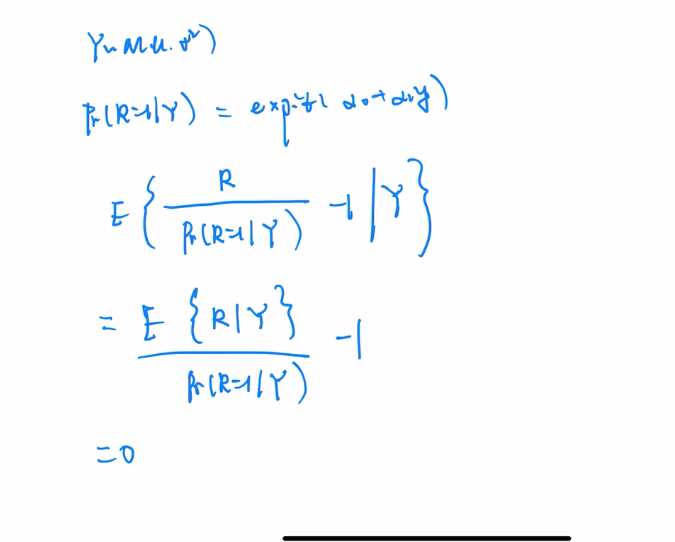 Y ~ N(μ, σ²)
Pr(R=1|Y) = expit(α₀ + α₁y)
E { R / Pr(R=1|Y) − 1 | Y }
= E {R|Y} / Pr(R=1|Y) − 1
= 0